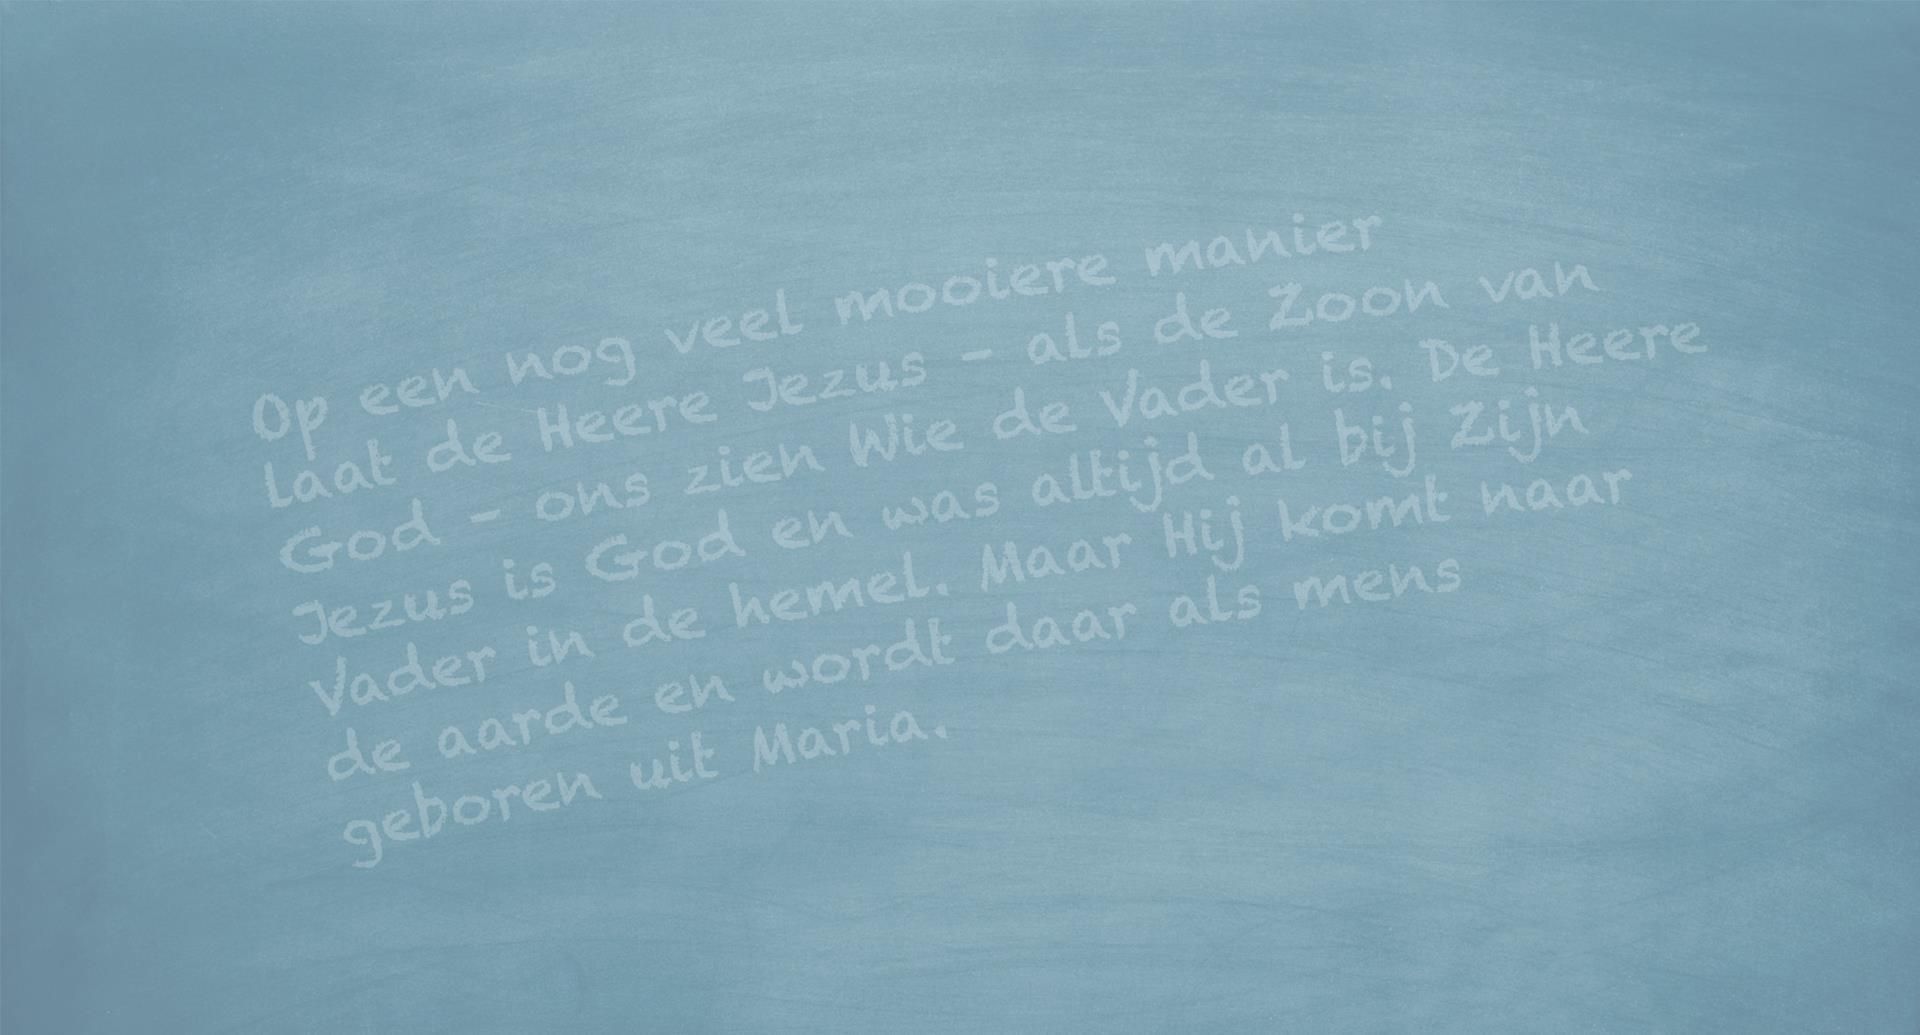 Op een nog veel mooiere manier
laat de Heere Jezus - als de Zoon van
God - ons zien Wie de Vader is. De Heere
Jezus is God en was altijd al bij Zijn
Vader in de hemel. Maar Hij komt naar
de aarde en wordt daar als mens
geboren uit Maria.